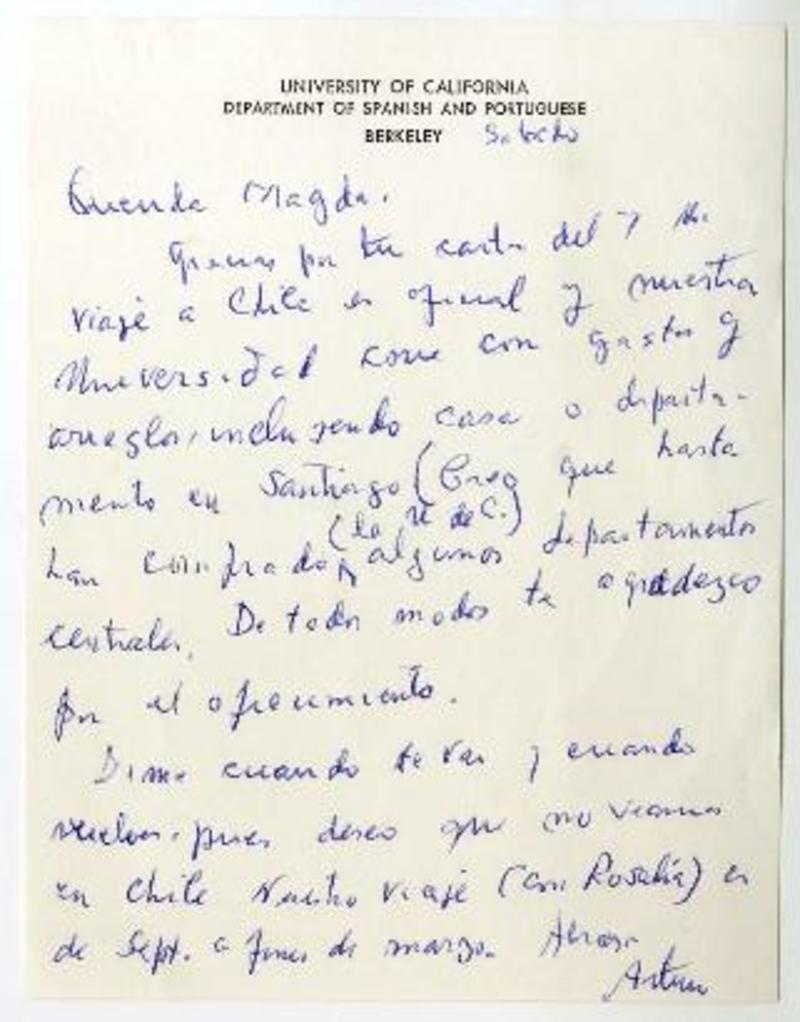 UNIVERSITY OF CALIFORNIA
DEPARTMENT OF SPANISH AND PORTUGUESE
BERKELEY Sabado
Querida Magda.
Gracias por tu carta del 7
viaje a Chile es oficial y nuestra
Universidad corre con gastos y
arreglos, incluyendo casa o departa-
mento en Santiago (Creo que hasta
(la U de C.)
han comprado algunos departamentos
centrales. De todos modos te agradezco
por el ofrecimiento.
Dime cuando te vas y cuando
vuelves, pues deseo que nos veamos
en Chile Nuestro viaje (con Rosalía) es
de Sept. a fines de marzo. Abrazos
Arturo